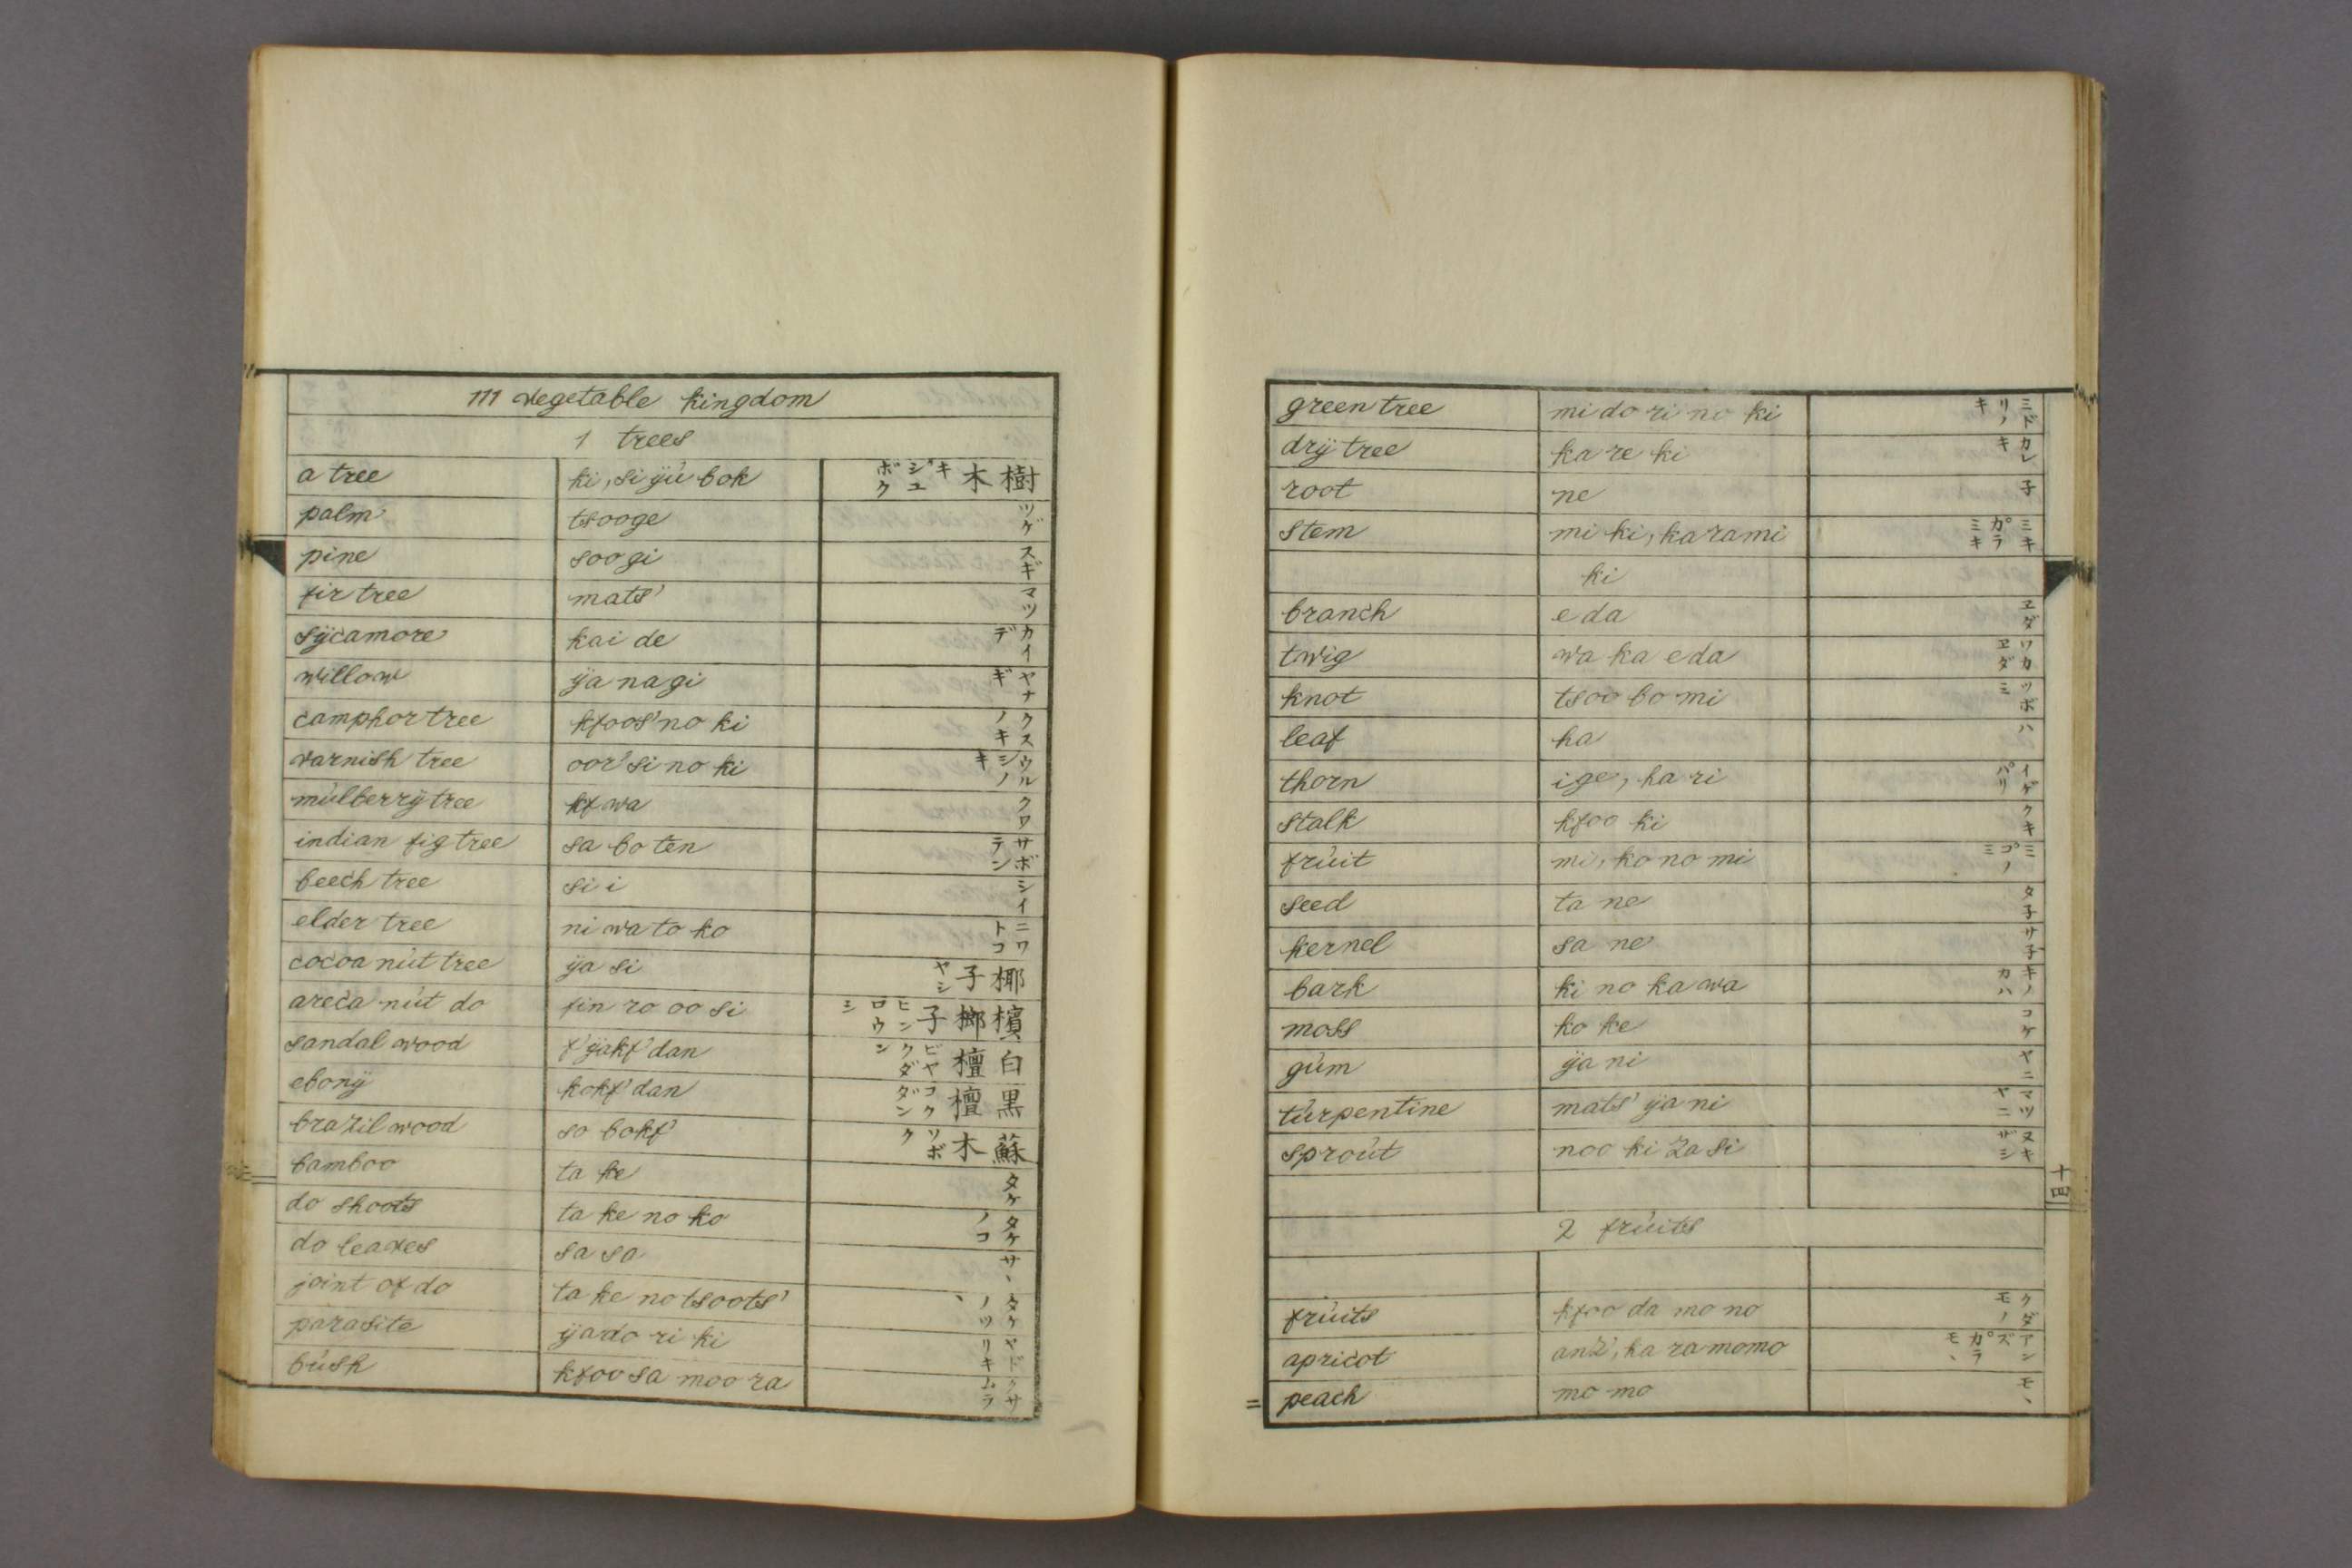 111 vegetable kingdom
1 trees
a tree ki, si yu bok 樹木 キ ジユボク
palm tsooge ツゲ
pine soo gi スギ
fir tree mats' マツ
sÿcamore kai de カイデ
willow ÿa na gi ヤナギ
camphor tree kfoos' no ki クスノキ
varnish tree oor' si no ki ウルシノキ
mulberrÿ tree kf wa クワ
indian fig tree sa bo ten サボテン
beech tree si i シイ
elder tree ni wa to ko ニワトコ
cocoa nut tree ÿa si 椰子 ヤシ
areca nut do fin ro oo si 檳榔子 ヒンロウシ
sandal wood f'ÿakf' dan 白檀 ビヤクダン
ebonÿ kokf' dan 黒檀 コクダン
brazil wood so bokf' 蘇木 ソボク
bamboo ta ke タケ
do shoots ta ke no ko タケノコ
do leaves sa sa サヽ
joint of do ta ke no tsoots' タケノツヽ
parasite ÿado ri ki ヤドリキ
bush kfoo sa moo ra クサムラ
green tree mi do ri no ki ミドリノキ
drÿ tree ka re ki カレキ
root ne 子
stem mi ki, ka ra mi ミキ カラミキ
ki
branch e da ヱダ
twig wa ka e da ワカヱダ
knot tsoo bo mi ツボミ
leaf ha ハ
thorn i ge, ha ri イゲ ハリ
stalk kfoo ki クキ
fruit mi, ko no mi ミ コノミ
seed ta ne タ子
kernel sa ne サ子
bark ki no ka wa キノカハ
moss ko ke コケ
gum ÿa ni ヤニ
turpentine mats' ÿa ni マツヤニ
sprout noo ki za si ヌキザシ
十四
2 fruits
fruits kfoo da mo no クダモノ
apricot anz', ka ra momo アンズ カラモヽ
peach mo mo モヽ